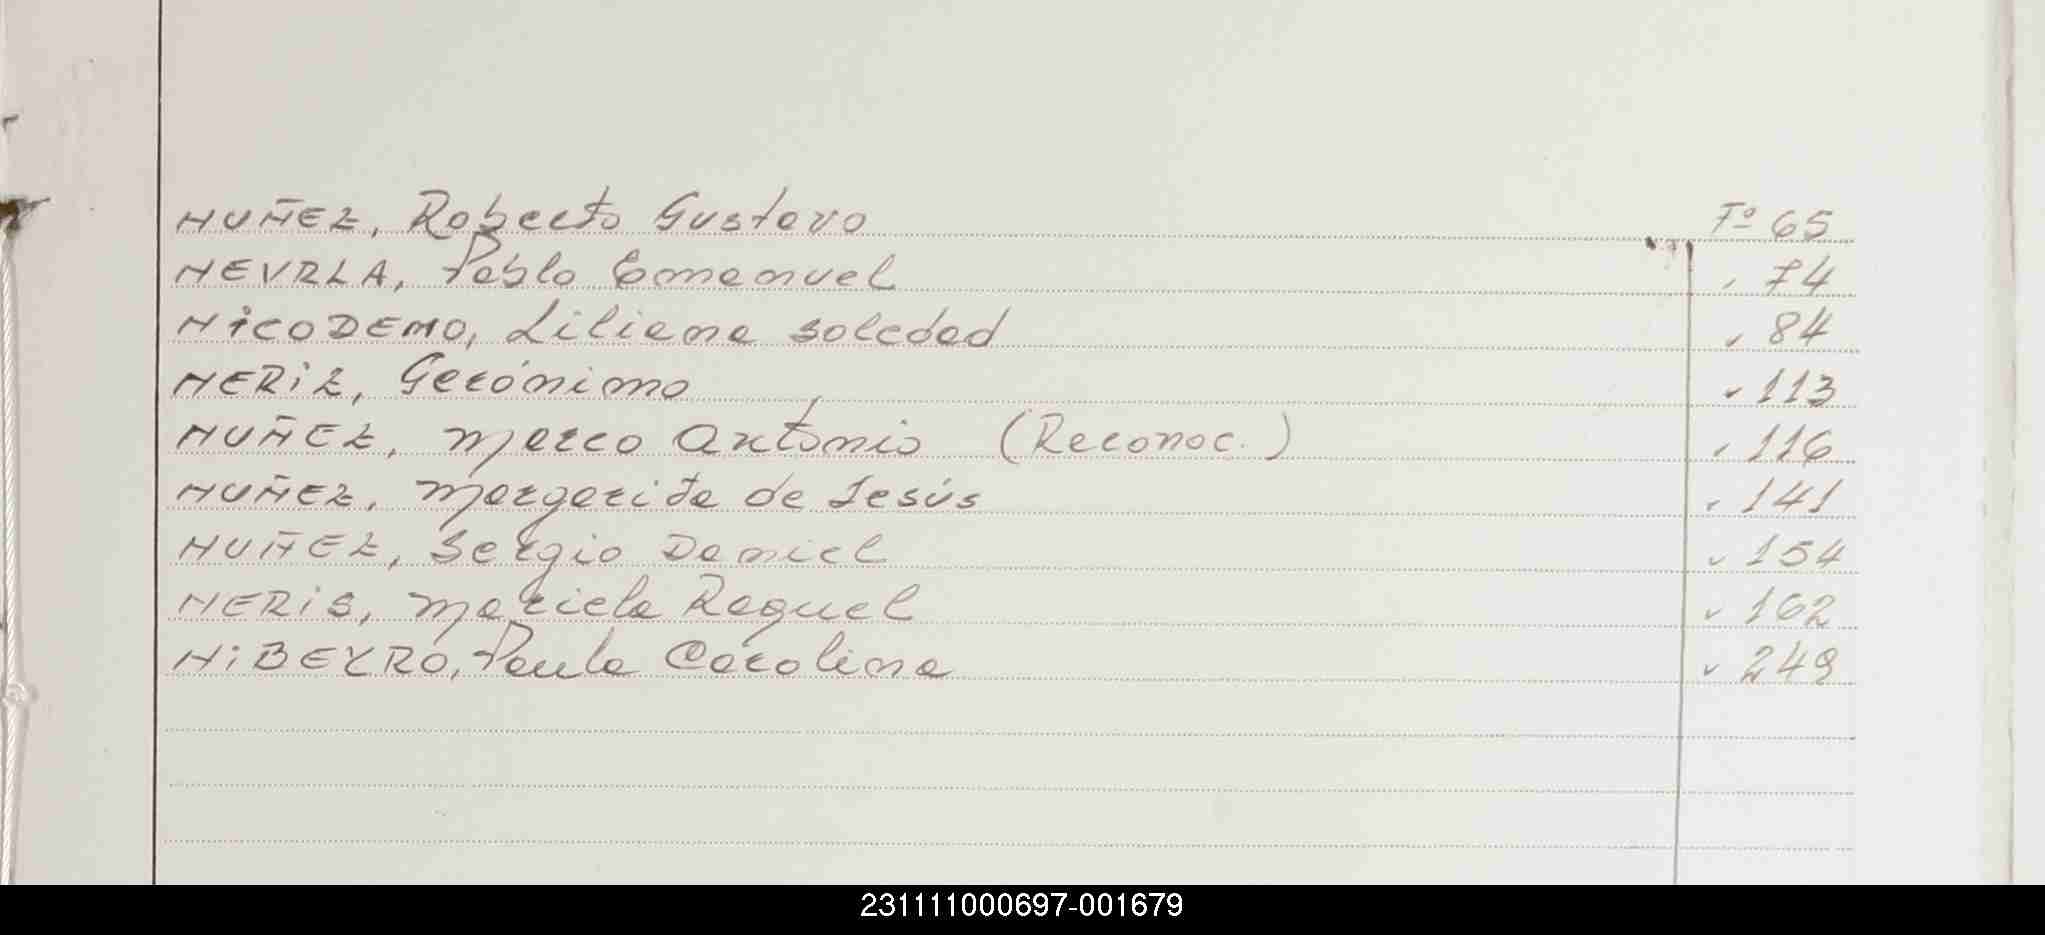 NUÑEZ, Roberto Gustavo Fº 65
NEVRLA, Pablo Emanuel " 74
NiCODEMO, Liliana Soledad " 84
NERiZ, Gerónimo " 113
NUÑEZ, Marco Antonio (Reconoc.) " 116
NUÑEZ, Margarita de Jesús " 141
NUÑEZ, Sergio Daniel " 154
NERiS, Mariela Raquel " 162
NiBEYRO, Paula Carolina " 249
231111000697-001679